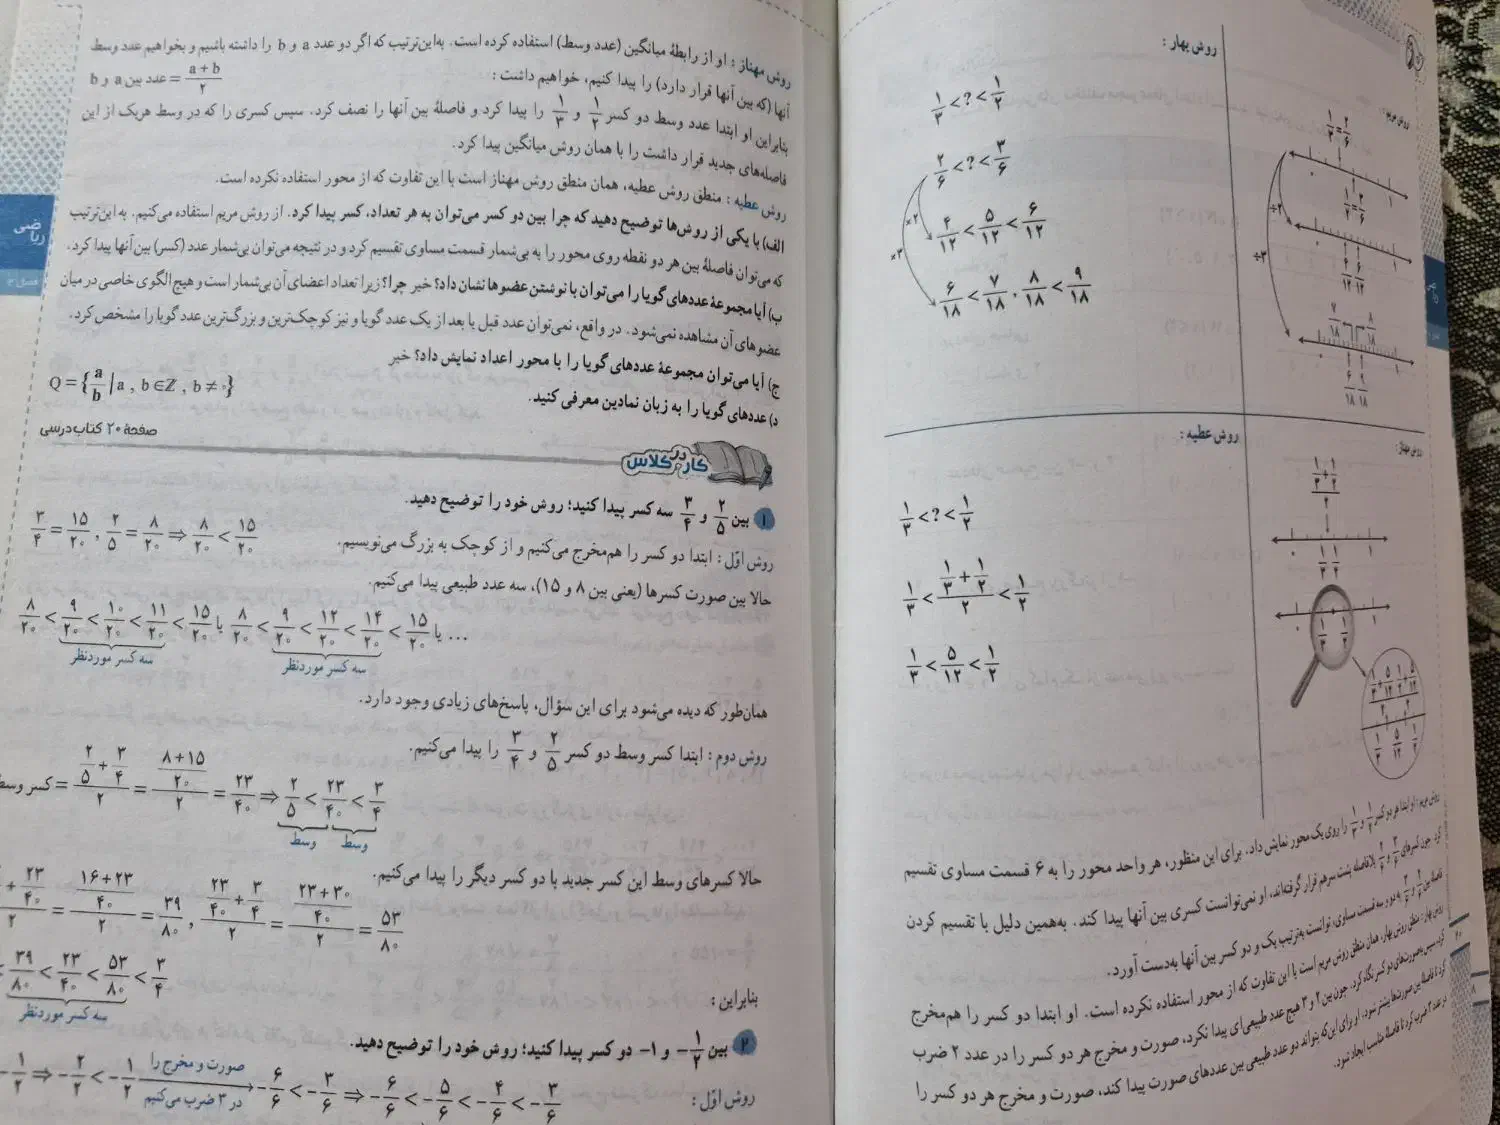 روش بهار :
۱/۳ < ? < ۱/۲
۲/۶ < ? < ۳/۶
×۲
۴/۱۲ < ۵/۱۲ < ۶/۱۲
×۳
۶/۱۸ < ۷/۱۸ . ۸/۱۸ < ۹/۱۸
روش مریم :
۱/۳ = ۲/۶
۱/۲ = ۳/۶
÷۲
÷۳
۴/۱۲ ۶/۱۲
۷/۱۸ ۸/۱۸
۶/۱۸ ۹/۱۸
روش عطیه :
۱/۳ < ? < ۱/۲
۱/۳ < (۱/۳ + ۱/۲)/۲ < ۱/۲
۱/۳ < ۵/۱۲ < ۱/۲
روش مهناز :
(۱/۳ + ۱/۲)/۲
۱/۳ ۱/۲
۱/۳ ۵/۱۲ ۱/۲
روش مریم : او ابتدا هر دو کسر ۱/۲ و ۱/۳ را روی یک محور نمایش داد. برای این منظور، هر واحد محور را به ۶ قسمت مساوی تقسیم
کرد. چون کسرهای ۲/۶ و ۳/۶ بلافاصله پشت سرهم قرار گرفته‌اند، او نمی‌توانست کسری بین آنها پیدا کند. به‌همین دلیل با تقسیم کردن
فاصلهٔ بین ۲/۶ و ۳/۶ به دو و سه قسمت مساوی، توانست به‌ترتیب یک و دو کسر بین آنها به‌دست آورد.
روش بهار : منطق روش بهار، همان منطق روش مریم است با این تفاوت که از محور استفاده نکرده است. او ابتدا دو کسر را هم‌مخرج
کرد. سپس به صورت‌های دو کسر نگاه کرد. چون بین ۲ و ۳ هیچ عدد طبیعی‌ای پیدا نکرد، صورت و مخرج هر دو کسر را در عدد ۲ ضرب
کرد تا فاصلهٔ بین صورت‌ها بیشتر شود. او برای این‌که بتواند دو عدد طبیعی بین عددهای صورت پیدا کند، صورت و مخرج هر دو کسر را
در عدد ۳ ضرب کرد تا فاصلهٔ مناسب ایجاد شود.
روش مهناز : او از رابطهٔ میانگین (عدد وسط) استفاده کرده است. به‌این‌ترتیب که اگر دو عدد a و b را داشته باشیم و بخواهیم عدد وسط
آنها (که بین آنها قرار دارد) را پیدا کنیم، خواهیم داشت : عدد بین a و b = (a + b)/۲
بنابراین او ابتدا عدد وسط دو کسر ۱/۲ و ۱/۳ را پیدا کرد و فاصلهٔ بین آنها را نصف کرد. سپس کسری را که در وسط هریک از این
فاصله‌های جدید قرار داشت را با همان روش میانگین پیدا کرد.
روش عطیه : منطق روش عطیه، همان منطق روش مهناز است با این تفاوت که از محور استفاده نکرده است.
الف) با یکی از روش‌ها توضیح دهید که چرا بین دو کسر می‌توان به هر تعداد، کسر پیدا کرد. از روش مریم استفاده می‌کنیم. به‌این‌ترتیب
که می‌توان فاصلهٔ بین هر دو نقطه روی محور را به بی‌شمار قسمت مساوی تقسیم کرد و در نتیجه می‌توان بی‌شمار عدد (کسر) بین آنها پیدا کرد.
ب) آیا مجموعهٔ عددهای گویا را می‌توان با نوشتن عضوها نشان داد؟ خیر چرا؟ زیرا تعداد اعضای آن بی‌شمار است و هیچ الگوی خاصی در میان
عضوهای آن مشاهده نمی‌شود. در واقع، نمی‌توان عدد قبل یا بعد از یک عدد گویا و نیز کوچک‌ترین و بزرگ‌ترین عدد گویا را مشخص کرد.
ج) آیا می‌توان مجموعهٔ عددهای گویا را با محور اعداد نمایش داد؟ خیر
د) عددهای گویا را به زبان نمادین معرفی کنید. Q = {a/b | a , b ∈ ℤ , b ≠ ۰}
ریاضی
فصل ۲
صفحهٔ ۲۰ کتاب درسی
کار در کلاس
۱ بین ۲/۵ و ۳/۴ سه کسر پیدا کنید؛ روش خود را توضیح دهید.
روش اوّل : ابتدا دو کسر را هم‌مخرج می‌کنیم و از کوچک به بزرگ می‌نویسیم. ۳/۴ = ۱۵/۲۰ , ۲/۵ = ۸/۲۰ ⇒ ۸/۲۰ < ۱۵/۲۰
حالا بین صورت کسرها (یعنی بین ۸ و ۱۵)، سه عدد طبیعی پیدا می‌کنیم.
۸/۲۰ < ۹/۲۰ < ۱۰/۲۰ < ۱۱/۲۰ < ۱۵/۲۰ یا ۸/۲۰ < ۹/۲۰ < ۱۲/۲۰ < ۱۴/۲۰ < ۱۵/۲۰ یا ...
سه کسر موردنظر سه کسر موردنظر
همان‌طور که دیده می‌شود برای این سؤال، پاسخ‌های زیادی وجود دارد.
روش دوم : ابتدا کسر وسط دو کسر ۲/۵ و ۳/۴ را پیدا می‌کنیم.
کسر وسط = (۲/۵ + ۳/۴)/۲ = ((۸+۱۵)/۲۰)/۲ = ۲۳/۴۰ ⇒ ۲/۵ < ۲۳/۴۰ < ۳/۴
وسط وسط
حالا کسرهای وسط این کسر جدید با دو کسر دیگر را پیدا می‌کنیم.
+ ۲۳/۴۰)/۲ = ((۱۶+۲۳)/۴۰)/۲ = ۳۹/۸۰ , (۲۳/۴۰ + ۳/۴)/۲ = ((۲۳+۳۰)/۴۰)/۲ = ۵۳/۸۰
بنابراین : < ۳۹/۸۰ < ۲۳/۴۰ < ۵۳/۸۰ < ۳/۴
سه کسر موردنظر
۲ بین -۱/۲ و -۱ دو کسر پیدا کنید؛ روش خود را توضیح دهید.
روش اوّل : -۱/۲ ⇒ -۲/۲ < -۱/۲ صورت و مخرج را در ۳ ضرب می‌کنیم -۶/۶ < -۳/۶ ⇒ -۶/۶ < -۵/۶ < -۴/۶ < -۳/۶